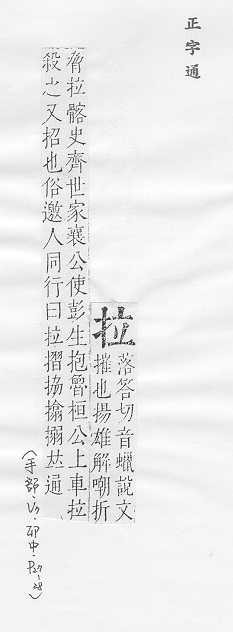 正字通
拉
落答切音蠟說文
摧也揚雄解嘲折
脅拉髂史齊世家襄公使彭生抱魯桓公上車拉
殺之又招也俗邀人同行曰拉摺拹搚搦𠀤通